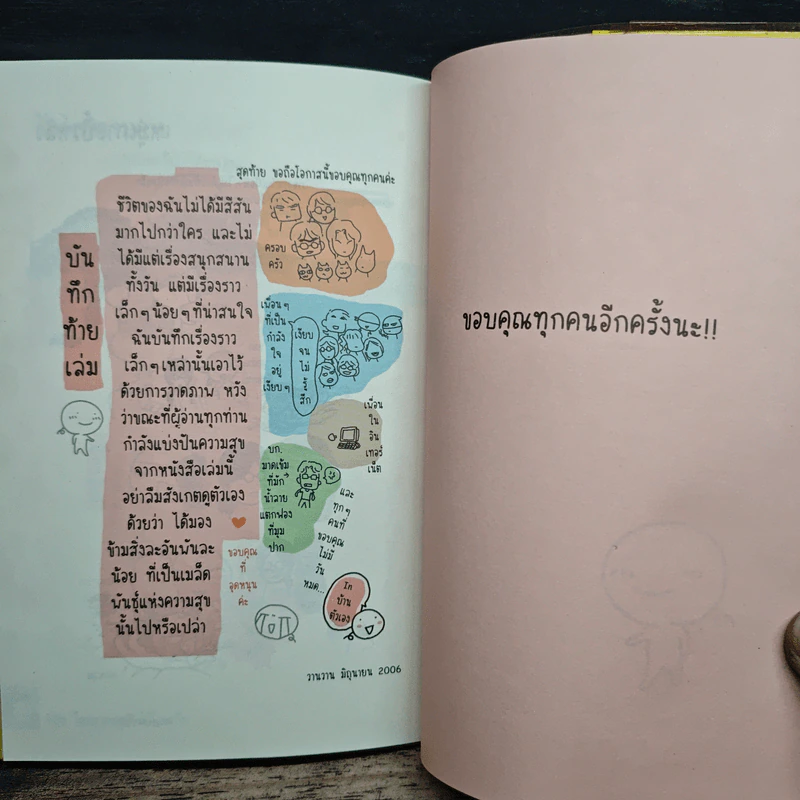 บัน
ทึก
ท้าย
เล่ม
ชีวิตของฉันไม่ได้มีสีสัน
มากไปกว่าใคร และไม่
ได้มีแต่เรื่องสนุกสนาน
ทั้งวัน แต่มีเรื่องราว
เล็กๆ น้อยๆ ที่น่าสนใจ
ฉันบันทึกเรื่องราว
เล็กๆ เหล่านั้นเอาไว้
ด้วยการวาดภาพ หวัง
ว่าขณะที่ผู้อ่านทุกท่าน
กำลังแบ่งปันความสุข
จากหนังสือเล่มนี้
อย่าลืมสังเกตดูตัวเอง
ด้วยว่า ได้มอง
ข้ามสิ่งละอันพันละ
น้อย ที่เป็นเมล็ด
พันธุ์แห่งความสุข
นั้นไปหรือเปล่า
สุดท้าย ขอถือโอกาสนี้ขอบคุณทุกคนค่ะ
ครอบ
ครัว
เพื่อนๆ
ที่เป็น
กำลัง
ใจ
อยู่
เงียบๆ
เงียบ
จน
ไม่
รู้
สึก
เพื่อน
ใน
อิน
เทอร์
เน็ต
บก.
มาดเข้ม
ที่มัก
น้ำลาย
แตกฟอง
ที่มุม
ปาก
และ
ทุกๆ
คนที่
ขอบคุณ
ไม่มี
วัน
หมด...
ขอบคุณ
ที่
อุดหนุน
ค่ะ
บ้าน
ตัวเอง
วานวาน มิถุนายน 2006
ขอบคุณทุกคนอีกครั้งนะ!!